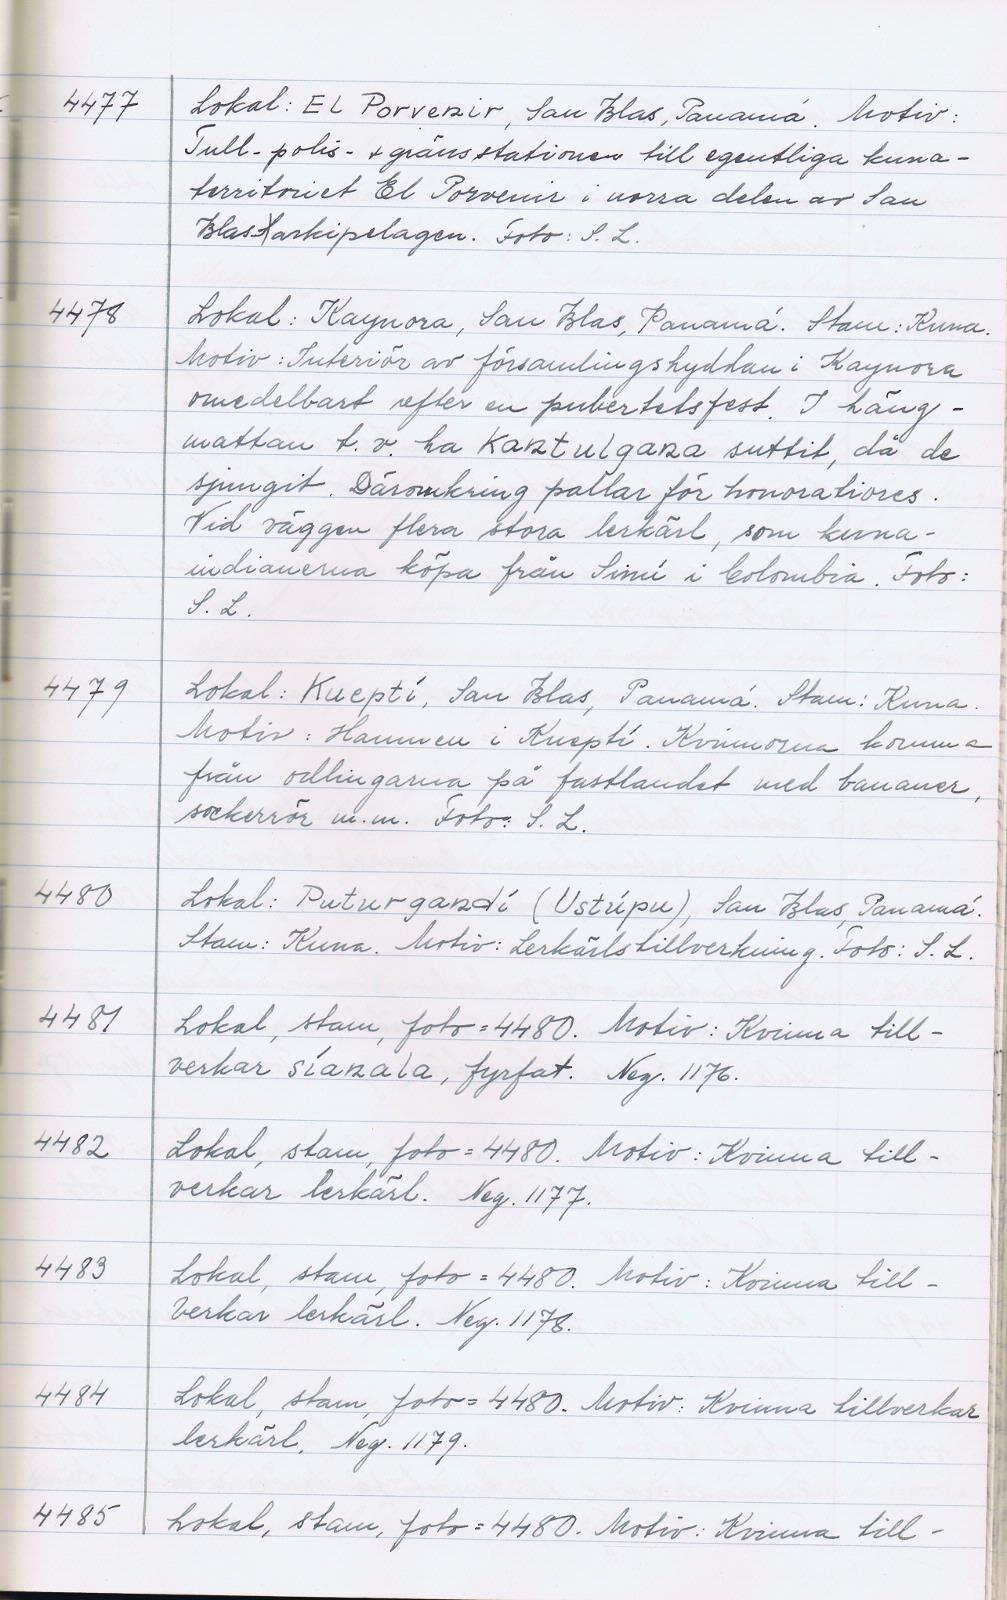 4477 Lokal: El Porvenir, San Blas, Panamá. Motiv:
Tull- polis- + gränsstationen till egentliga kuna-
territoriet El Porvenir i norra delen av San
Blas-arkipelagen. Foto: S. L.
4478 Lokal: Kaynora, San Blas, Panamá. Stam: Kuna.
Motiv: Interiör av församlingshyddan i Kaynora
omedelbart efter en pubertetsfest. I häng-
mattan t. v. ha kantulgana suttit, då de
sjungit. Däromkring pallar för honoratiores.
Vid väggen flera stora lerkärl, som kuna-
indianerna köpa från Sinú i Colombia. Foto:
S. L.
4479 Lokal: Kueptí, San Blas, Panamá. Stam: Kuna.
Motiv: Hamnen i Kueptí. Kvinnorna komma
från odlingarna på fastlandet med bananer,
sockerrör m.m. Foto: S. L.
4480 Lokal: Puturgandí (Ustúpu), San Blas, Panamá.
Stam: Kuna. Motiv: Lerkärlstillverkning. Foto: S. L.
4481 Lokal, stam, foto = 4480. Motiv: Kvinna till-
verkar síanala, fyrfat. Neg. 1176.
4482 Lokal, stam, foto = 4480. Motiv: Kvinna till-
verkar lerkärl. Neg. 1177.
4483 Lokal, stam, foto = 4480. Motiv: Kvinna till-
verkar lerkärl. Neg. 1178.
4484 Lokal, stam, foto = 4480. Motiv: Kvinna tillverkar
lerkärl. Neg. 1179.
4485 Lokal, stam, foto = 4480. Motiv: Kvinna till-